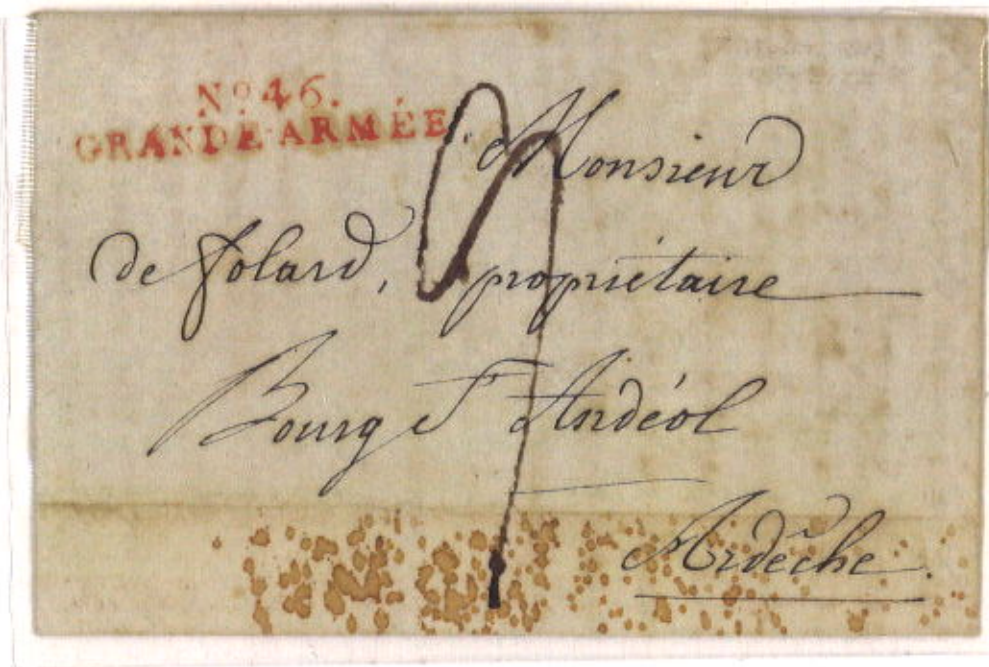 No 46.
GRANDE ARMÉE
Monsieur
de Folard, propriétaire
Bourg St Andéol
Ardêche.